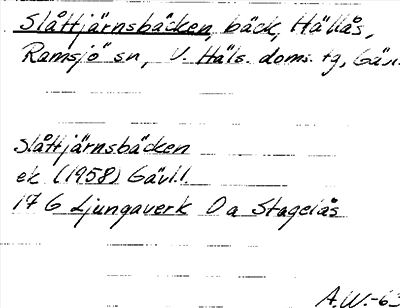 Slåttjärnsbäcken, bäck, Hällås,
Ramsjö sn, V. Häls. doms. tg, Gävl.
Slåttjärnsbäcken
ek. (1958) Gävl.l.
17 G Ljungaverk D a Stagelås
A.W.-63